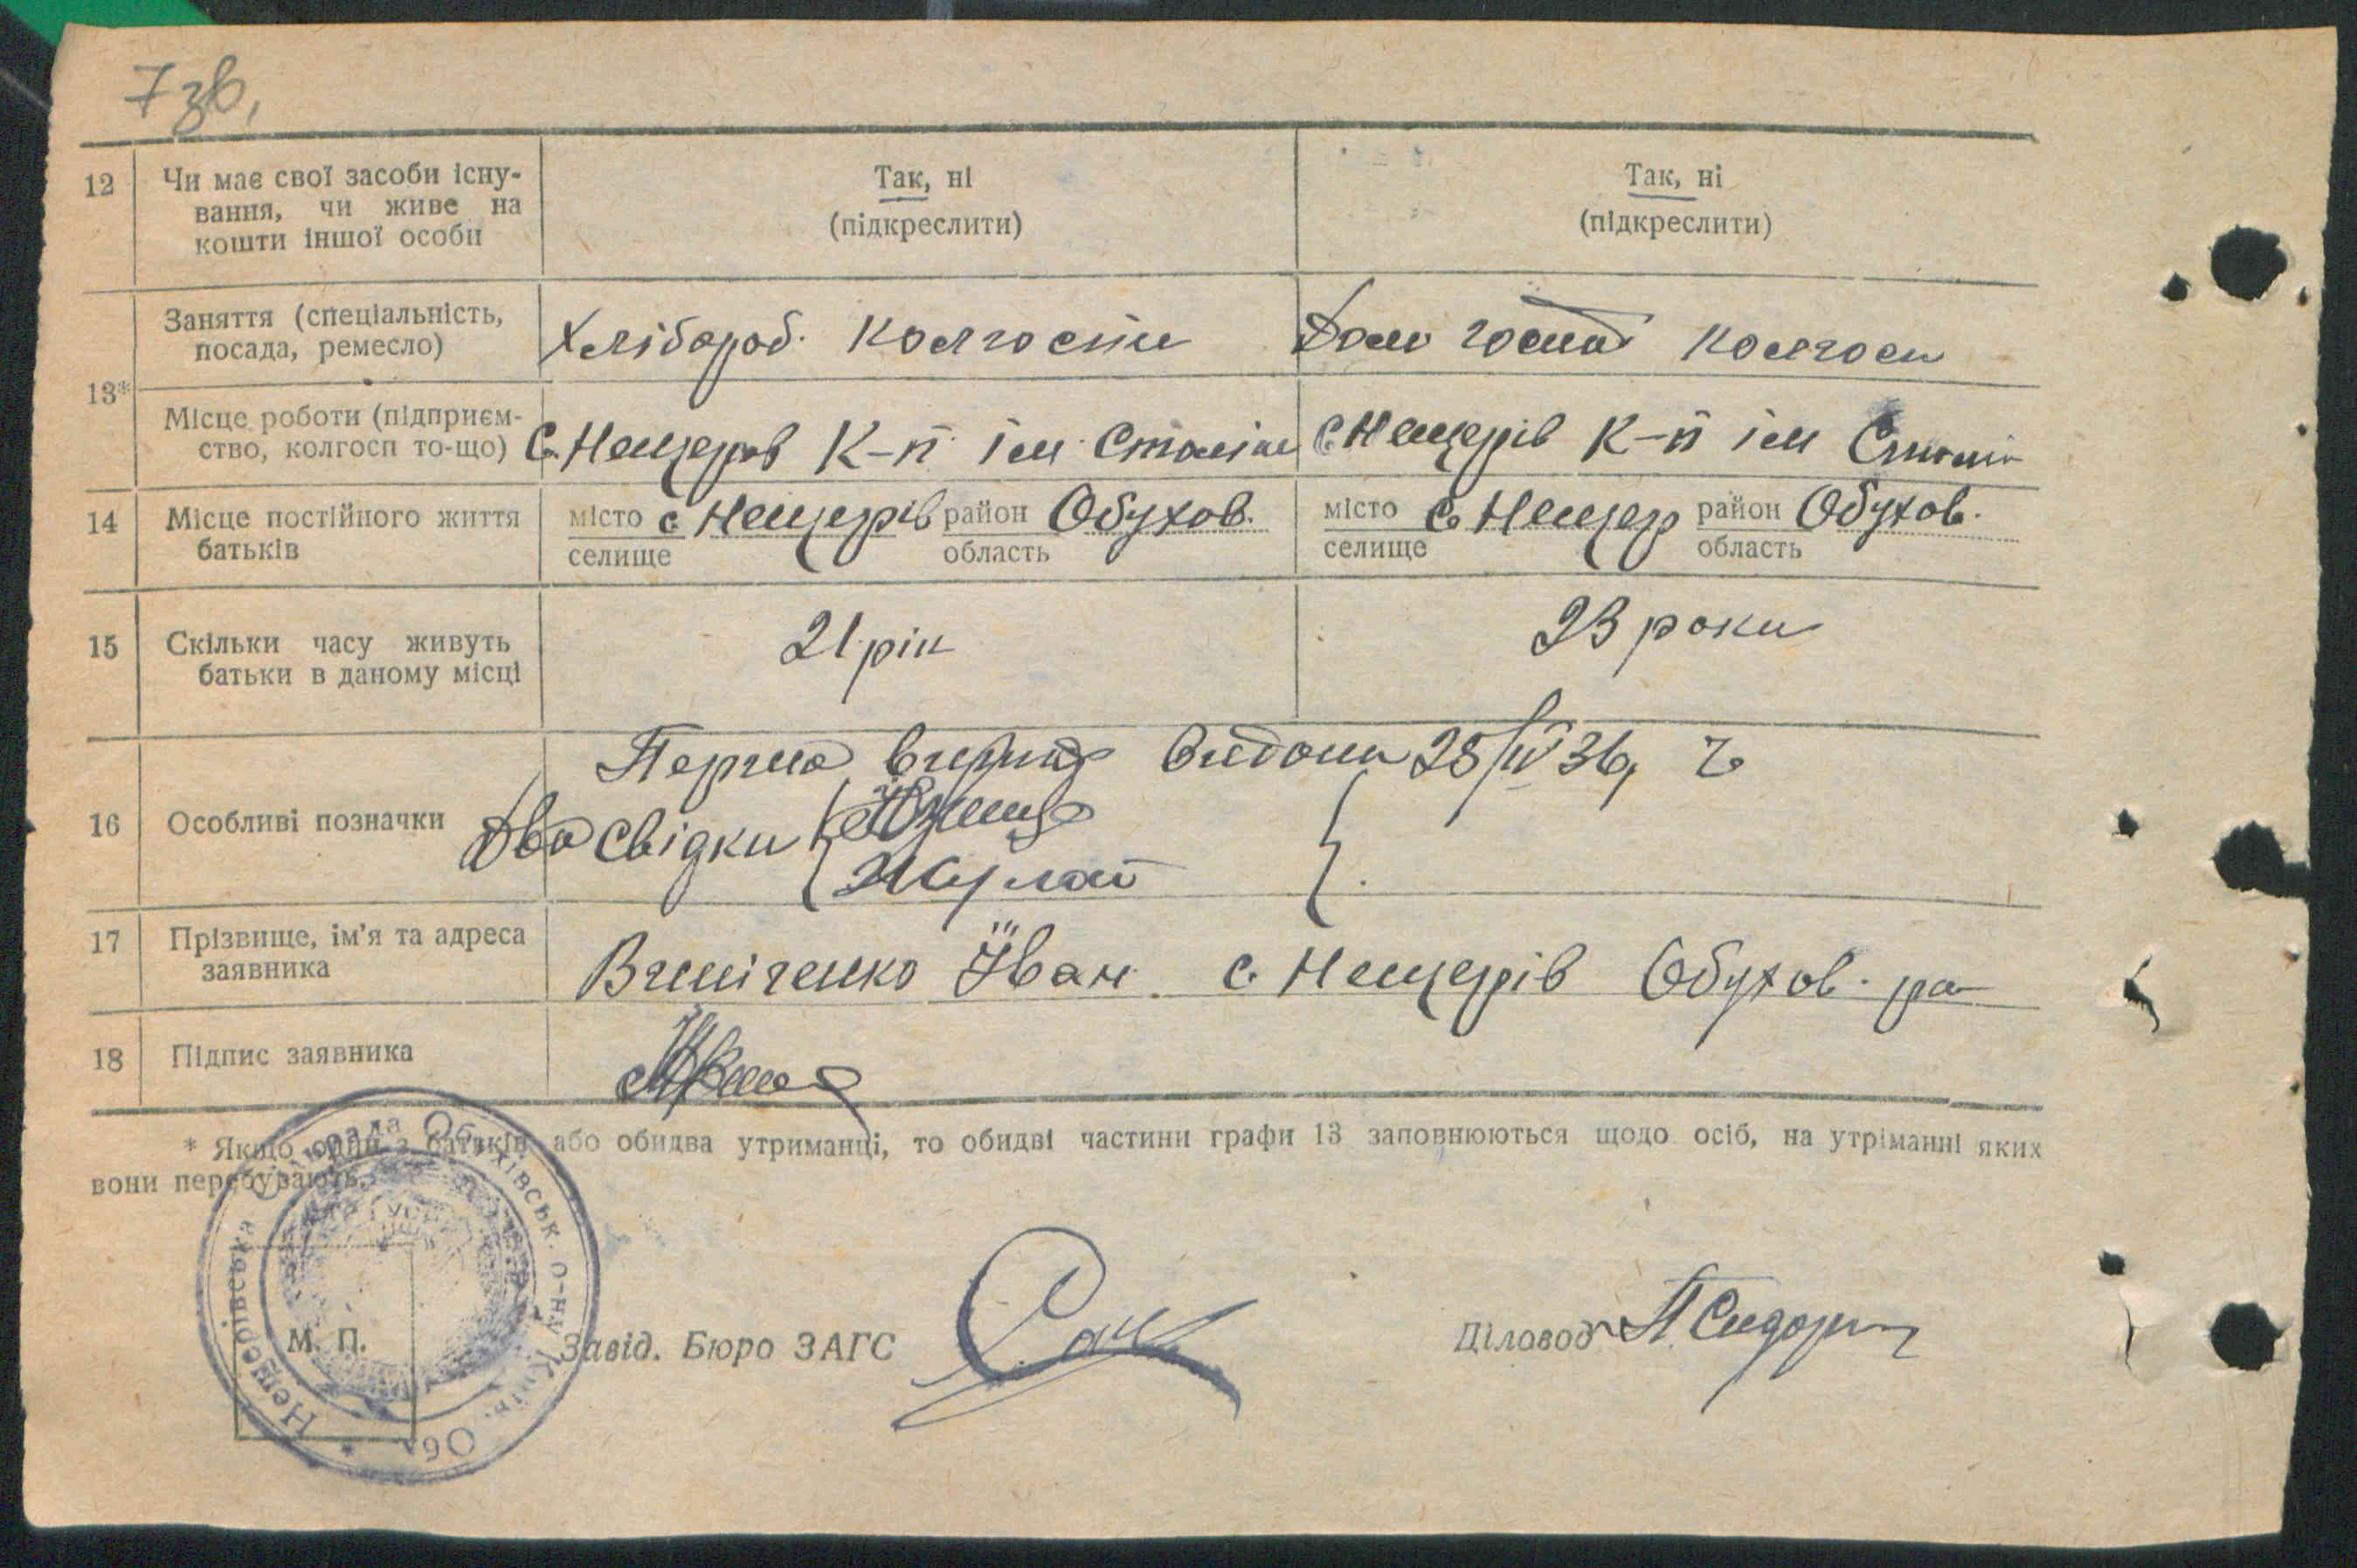 7 зв,
12 Чи має свої засоби існу-
вання, чи живе на
кошти іншої особи
Так, ні
(підкреслити)
Так, ні
(підкреслити)
13*
Заняття (спеціальність,
посада, ремесло)
Хлібороб. колгоспн
Дом господ колгосп
Місце роботи (підприєм-
ство, колгосп то-що)
С. Нещерів К-п ім Сталін
С. Нещерів К-п ім Сталін
14 Місце постійного життя
батьків
місто с. Нещерів район Обухов.
селище область
місто с. Нещер район Обухов.
селище область
15 Скільки часу живуть
батьки в даному місці
21 рік
23 роки
16 Особливі позначки
Видан 25/IV 36, г
Два свідки
17 Прізвище, ім'я та адреса
заявника
Іван с. Нещерів Обухов. ра
18 Підпис заявника
* Якщо один з батьків або обидва утриманці, то обидві частини графи 13 заповнюються щодо осіб, на утріманні яких
вони перебувають.
Нещерівська Сільрада Обухівськ. р-ну Київ. Обл.
М. П.
Завід. Бюро ЗАГС
Діловод П. Сидор